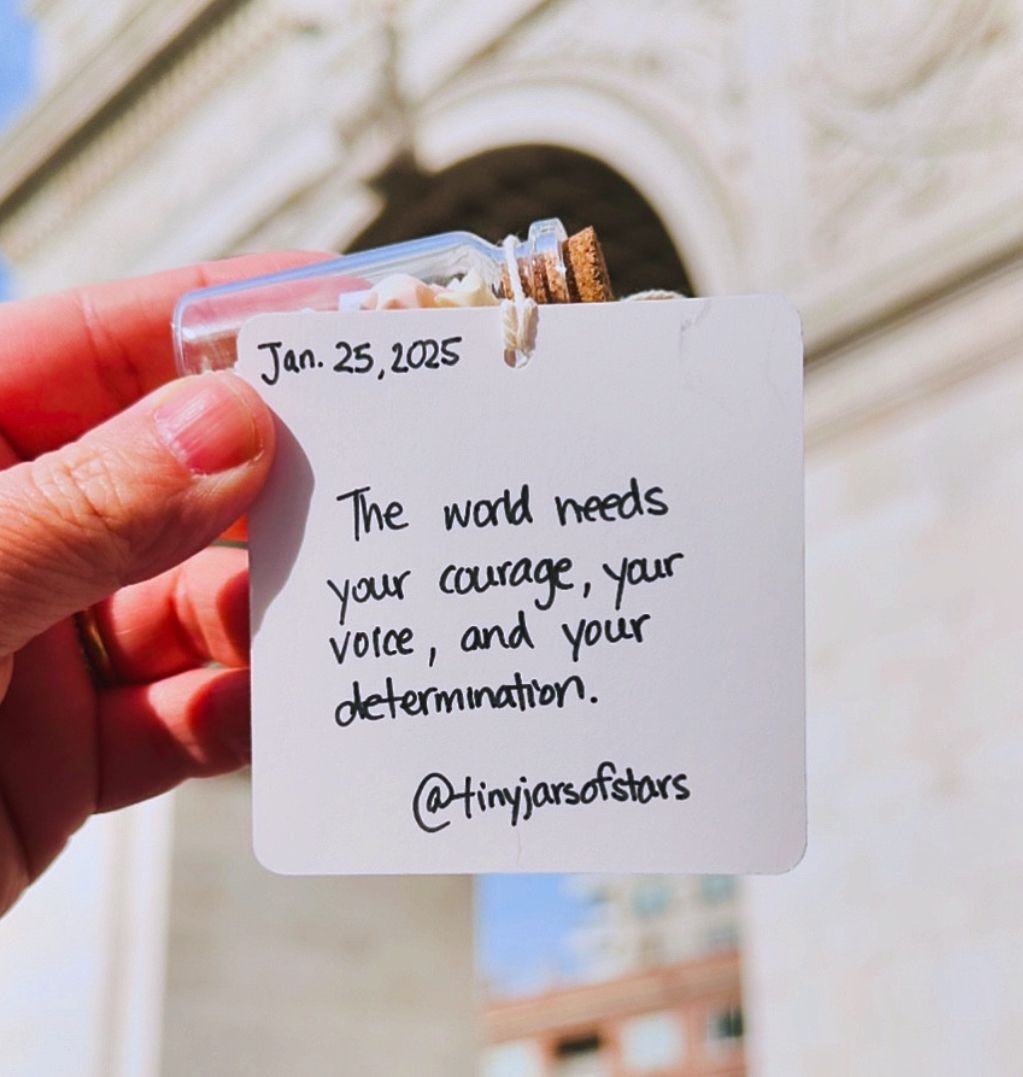 Jan. 25, 2025
The world needs
your courage, your
voice, and your
determination.
@tinyjarsofstars